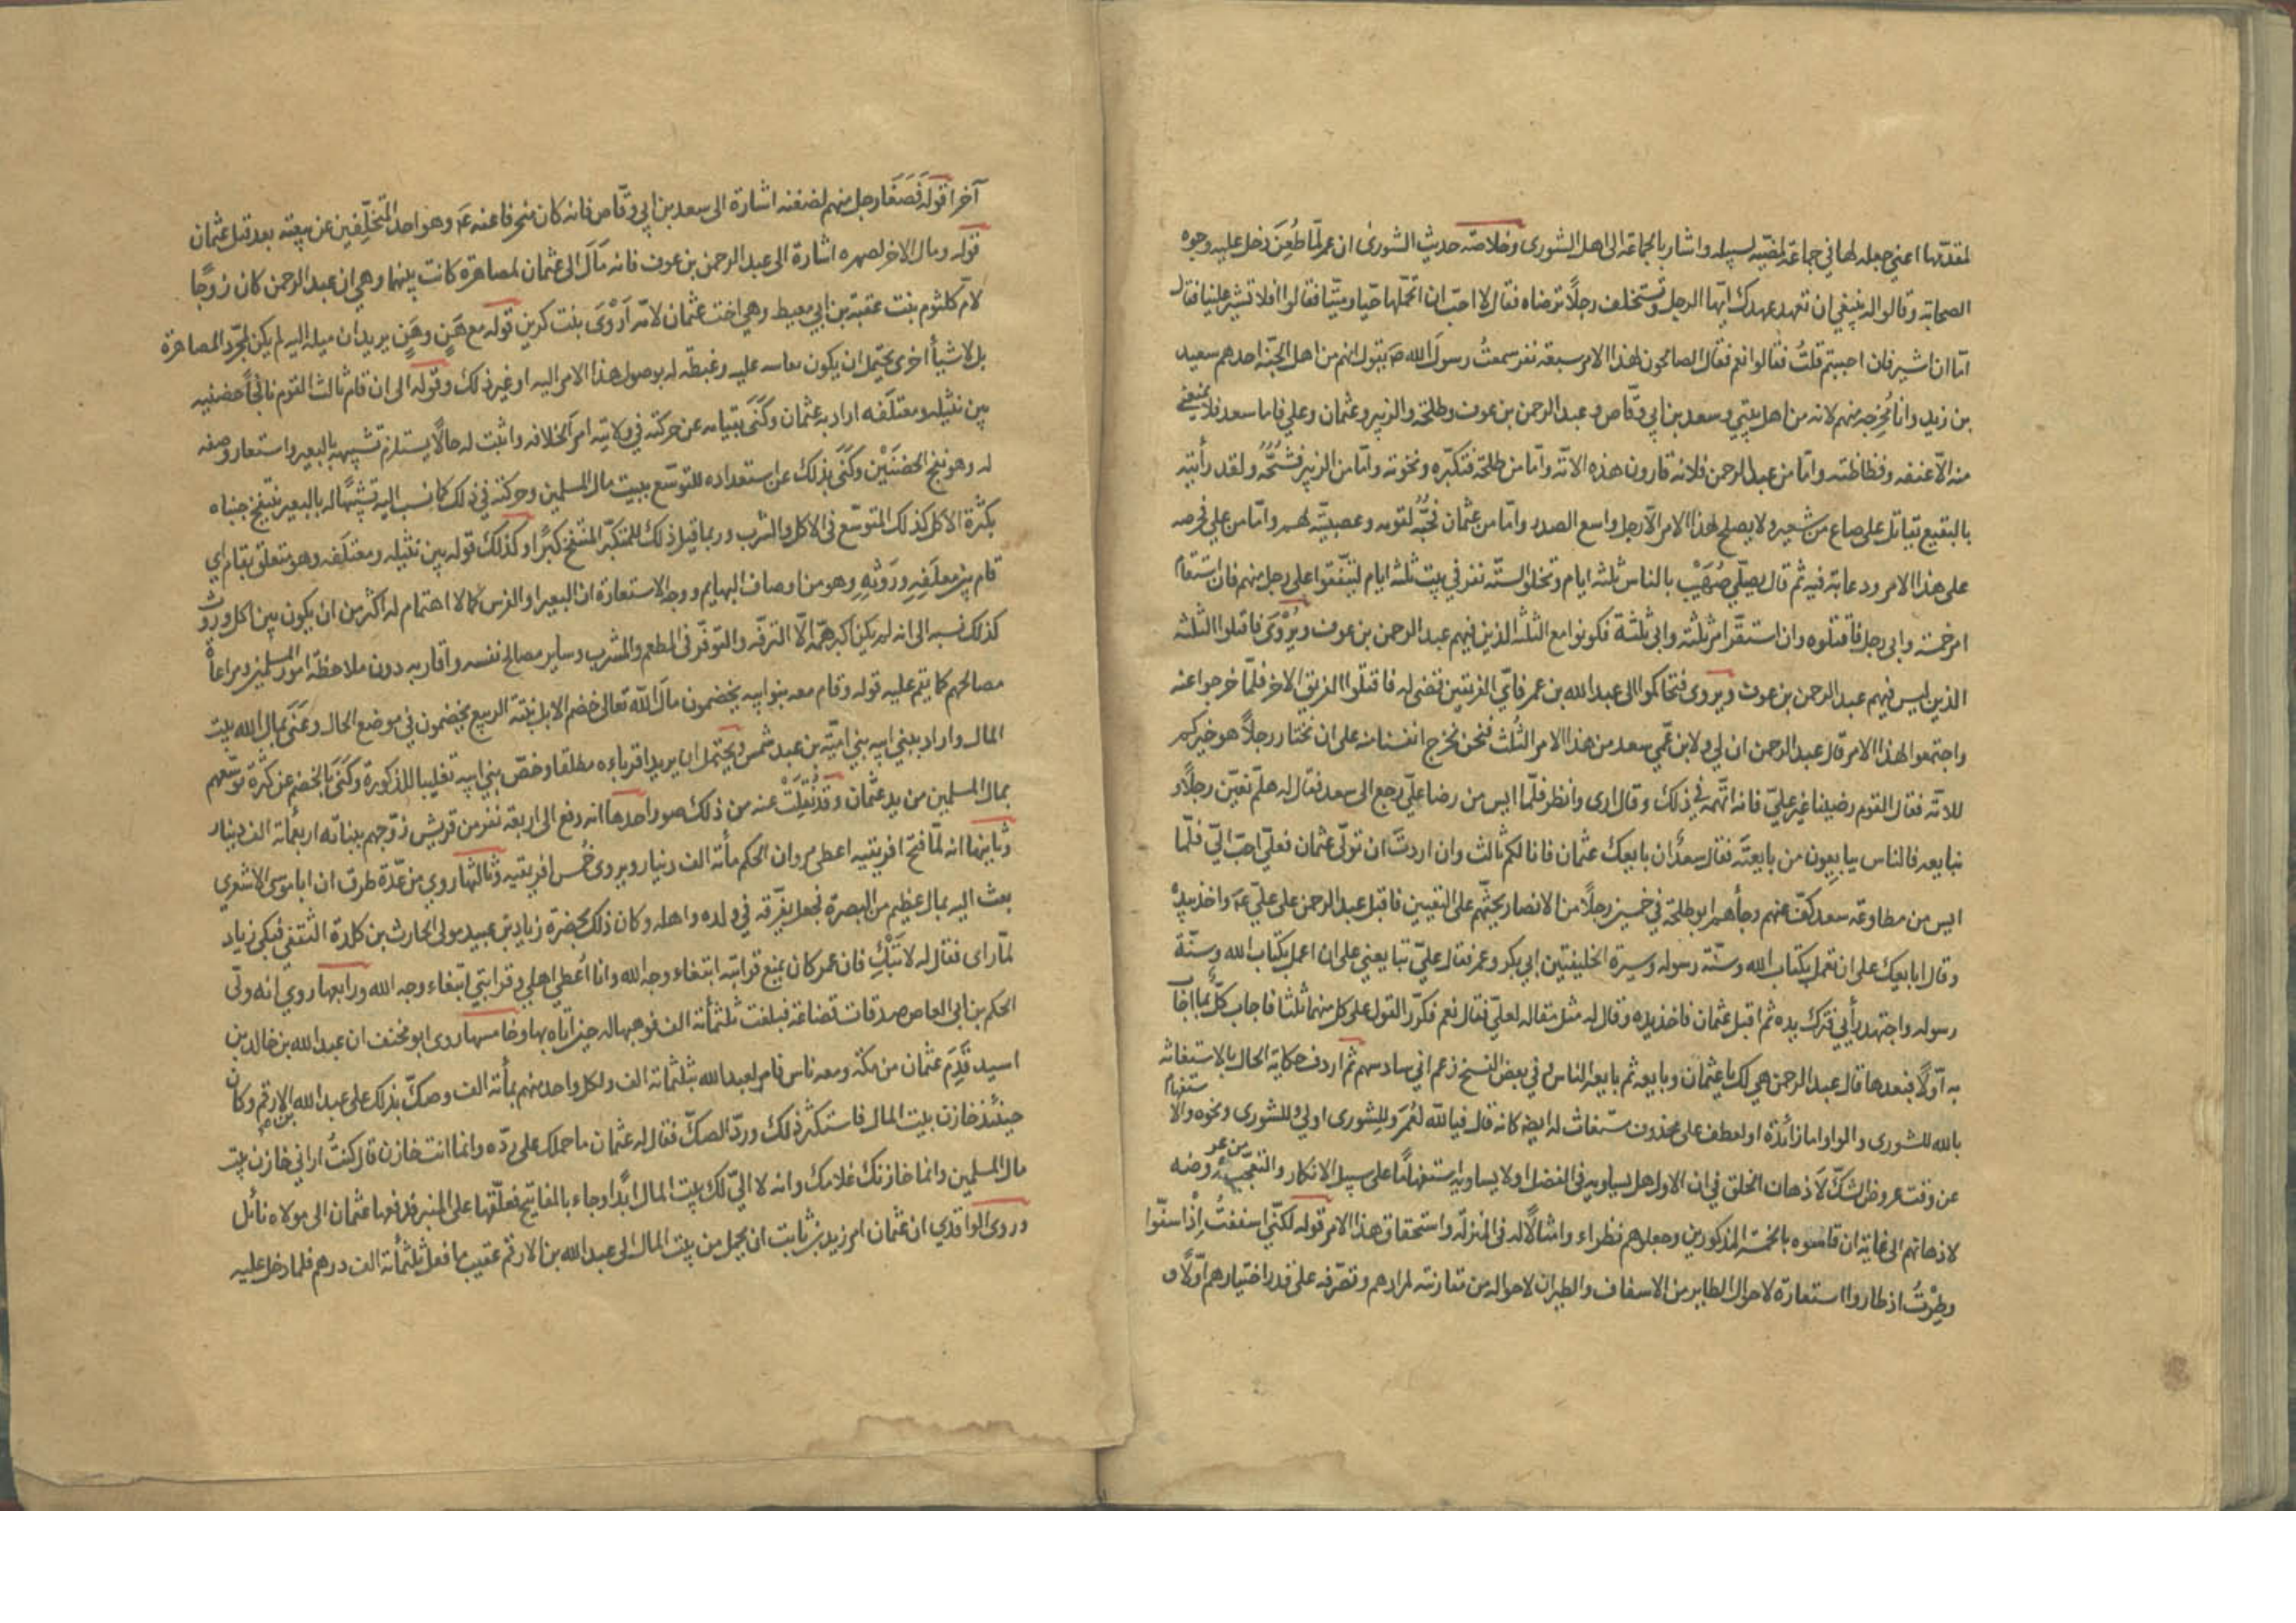 لمقدّتها اعني جعله لها في جماعة لمضيّه لسبيله واشار بالجماعة الى اهل الشورى وخلاصة حديث الشورى ان عمر لمّا طُعِنَ دخل عليه وجوه
الصحابة وقالوا له ينبغي ان تعهد عهدك ايّها الرجل وتستخلف رجلاً ترضاه فقال لا احبّ ان اتحمّلها حيّا وميّتا فقالوا افلا تشير علينا فقال
امّا ان اشير فان احببتم قلتُ فقالوا نعم فقال الصالحون لهذا الامر سبعة نفر سمعتُ رسول الله صم يقول انهم من اهل الجنّة احدهم سعيد
بن زيد وانا مُخرجه منهم لانه من اهل بيتي وسعد بن ابي وقّاص وعبد الرحمن بن عوف وطلحة والزبير وعثمان وعلي فاما سعد فلا يمنعني
منه الّا عنفه وفظاظته وامّا من عبد الرحمن فلانه قارون هذه الامّة وامّا من طلحة فتكبّره ونخوته وامّا من الزبير فشُحّه ولقد رأيته
بالبقيع يقاتل على صاع من شعير ولا يصلح لهذا الامر الّا رجل واسع الصدر وامّا من عثمان فحُبّه لقومه وعصبيّته لهم وامّا من علي فحرصه
على هذا الامر ودعابة فيه ثم قال يصلّي صُهَيْب بالناس ثلثة ايام وتخلوا الستّة نفر في بيت ثلثة ايام ليتّفقوا على رجل منهم فان استقام
امر خمسة وابى رجل فاقتلوه وان استقرّ امر ثلثة وابى ثلثة فكونوا مع الثلثة الذين فيهم عبد الرحمن بن عوف ويُرْوى فاقتلوا الثلثة
الذين ليس فيهم عبد الرحمن بن عوف ويروى فتحاكموا الى عبد الله بن عمر فايّ الفريقين قضى له فاقتلوا الفريق الاخر فلمّا خرجوا عنه
واجتمعوا لهذا الامر قال عبد الرحمن ان لي ولابن عمّي سعد من هذا الامر الثُلث فنحن نخرج انفسنا منه على ان نختار رجلاً هو خيركم
للامّة فقال القوم رضينا غير عليّ فانه اتّهمه في ذلك وقال ارى وانظر فلمّا ايس من رضا عليّ رجع الى سعد فقال له هلمّ نعيّن رجلاً و
نبايعه فالناس يبايعون من بايعتَه فقال سعد ان بايعك عثمان فانا لكم ثالث وان اردتَ ان تولّي عثمان فعليّ احبّ اليّ فلمّا
ايس من مطاوعة سعد كفّ عنهم وجأهم ابو طلحة في خمسين رجلاً من الانصار يحثّهم على التعيين فاقبل عبد الرحمن على عليّ عم واخذ بيده
وقال ابايعك على ان تعمل بكتاب الله وسنّة رسوله وسيرة الخليفتين ابي بكر وعمر فقال عليّ تبايعني على ان اعمل بكتاب الله وسنّة
رسوله واجتهد برأيي فترك يده ثم اقبل عثمان فاخذ بيده وقال له مثل مقاله لعليّ فقال نعم فكرّر القول على كل منهما ثلثا فاجاب كلّ بما اجاب
به اوّلاً فبعدها قال عبد الرحمن هي لك يا عثمان وبايعه ثم بايعه الناس وفي بعض النسخ زعم اني سادسهم ثم اردف حكاية الحال بالاستغاثة
بالله للشورى والواو اما زائدة او لعطف على محذوف مستغاث له ايضا كانه قال فيا لله لعُمَر وللشورى او لي وللشورى ونحوه والاستفهام
عن وقت عروض الشكّ لاذهان الخلق في ان الاول هل يساويه في الفضل او لا يساويه استفهامًا على سبيل الانكار والتعجّب من عروضه
لاذهانهم الى غاية ان قاسوه بالخمسة المذكورين وجعلوهم نظراء وامثالًا له في المنزلة واستحقاق هذا الامر قوله لكنّي اسففتُ اذْ اسفّوا
وطِرْتُ اذ طاروا استعارة لاحوال الطاير من الاسفاف والطيران لاحواله من مقارنته لمرادهم وتصرّفه على قدر اختيارهم اوّلاً و
آخرا قوله فَصَغَا رجل منهم لضغنه اشارة الى سعد بن ابي وقّاص فانه كان منحرفا عنه عم وهو احد المتخلّفين عن بيعته بعد قتل عثمان
قوله ومال الاخر لصهره اشارة الى عبد الرحمن بن عوف فانه مَالَ الى عثمان لمصاهرة كانت بينهما وهي ان عبد الرحمن كان زوجًا
لامّ كلثوم بنت عقبة بن ابي معيط وهي اخت عثمان لامّه اَرْوَى بنت كريز قوله مع هَنٍ وهَنٍ يريد ان ميله اليه لم يكن لمجرّد المصاهرة
بل لاشيأ اخرى يحتمل ان يكون نفاسه عليه وغبطة له بوصول هذا الامر اليه او غير ذلك وقوله الى ان قام ثالث القوم نافجًا حضنيه
بين نثيله ومعتلَفه اراد به عثمان وكَنَى بقيامه عن حركته في ولاية امر الخلافة واثبت له حالًا يستلزم تشبيهه بالبعير واستعار وصفه
له وهو نفج الحضنَيْن وكَنَى بذلك عن استعداده للتوسّع ببيت مال المسلمين وحركته في ذلك كما نسب اليه تشبيهًا له بالبعير ينتفخ جنباه
بكثرة الاكل كذلك المتوسّع في الاكل والشرب وربما قيل ذلك للمتكبّر المنتفخ كبرًا وكذلك قوله بين نثيله ومعتلَفه وهو متعلق بقام اي
قام بين معلَفِهِ ورَوْثِهِ وهو من اوصاف البهايم ووجه الاستعارة ان البعير او الفرس كما لا اهتمام له اكثر من ان يكون بين اكل وروث
كذلك نسبه الى انه لم يكن اكبر همّه الّا الترفّه والتوفّر في المطعم والمشرب وساير مصالح نفسه واقاربه دون ملاحظة امور المسلمين ومراعاة
مصالحهم كما ينقم عليه قوله وقام معه بنو ابيه يخضمون مال الله تعالى خضم الابل نبتة الربيع يخضمون في موضع الحال وعَنَى بمال الله بيت
المال واراد ببني ابيه بني اميّة بن عبد شمس ويحتمل ان يريد اقرباءه مطلقا وخصّ بني ابيه تغليبا للذكورة وكَنَى بالخضم عن كثرة توسّعهم
بمال المسلمين من يد عثمان وقد نُقِلَتْ عنه من ذلك صور احدها انه دفع الى اربعة نفر من قريش زوّجهم ببناته اربعمأة الف دينار
وثانيها انه لمّا فتح افريقيه اعطى مروان الحكم مأة الف دينار ويروى خُمس افريقيه وثالثها روي من عدّة طرق ان ابا موسى الاشعري
بعث اليه بمال عظيم من البصرة فجعل يفرّقه في ولده واهله وكان ذلك بحضرة زياد بن عبيد مولى الحارث بن كلدة الثقفي فبكى زياد
لمّا راى فقال له لا تَبْكِ فان عمر كان يمنع قرابته ابتغاء وجه الله وانا اُعطي اهلي وقرابتي ابتغاء وجه الله ورابعها روي انه ولّى
الحكم بن ابي العاص صدقات قضاعة فبلغت ثلثمأة الف فوهبها له حين اتاه بها وخامسها روى ابو مخنف ان عبد الله بن خالد بن
اسيد قَدِمَ عثمان من مكة ومعه ناس فامر لعبد الله بثلثمأة الف ولكل واحد منهم بمأة الف وصكّ بذلك على عبد الله بن الارقم وكان
حينئذ خازن بيت المال فاستكثر ذلك وردّ الصكّ فقال له عثمان ما حملك على ردّه وانما انت خازن قال كنتُ اراني خازن بيت
مال المسلمين وانما خازنك غلامك وانه لا الي لك بيت المال ابدًا وجاء بالمفاتيح فعلّقها على المنبر فدفعها عثمان الى مولاه نائل
وروى الواقدي ان عثمان امر زيد بن ثابت ان يحمل من بيت المال الى عبد الله بن الارقم عقيب ما فعل ثلثمأة الف درهم فلما دخل عليه